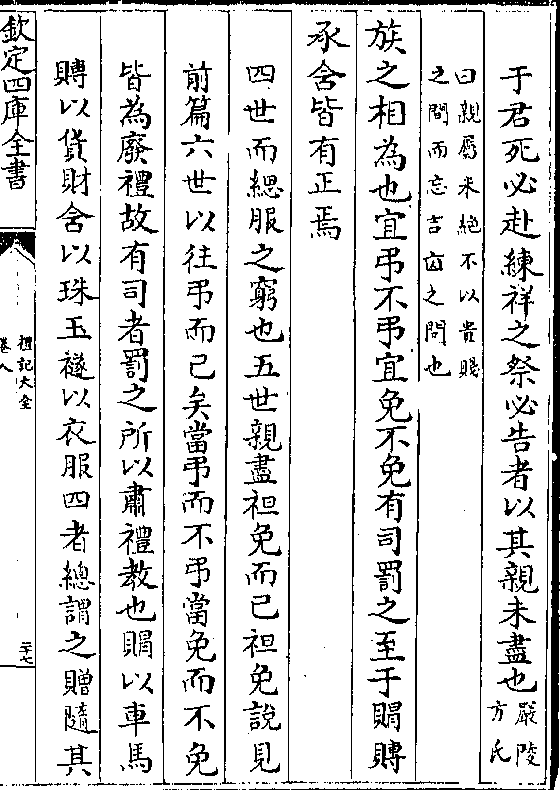 于君死必赴練祥之祭必告者以其親未盡也嚴陵方氏
曰親屬未絶不以貴賤
之間而忘吉凶之問也
族之相為也宜弔不弔宜免不免有司罰之至于賵賻
承含皆有正焉
四世而緦服之窮也五世親盡袒免而已袒免說見
前篇六世以往弔而已矣當弔而不弔當免而不免
皆為廢禮故有司者罰之所以肅禮教也賵以車馬
賻以貨財含以珠玉襚以衣服四者總謂之贈隨其
欽定四庫全書
禮記大全
卷八
二十七